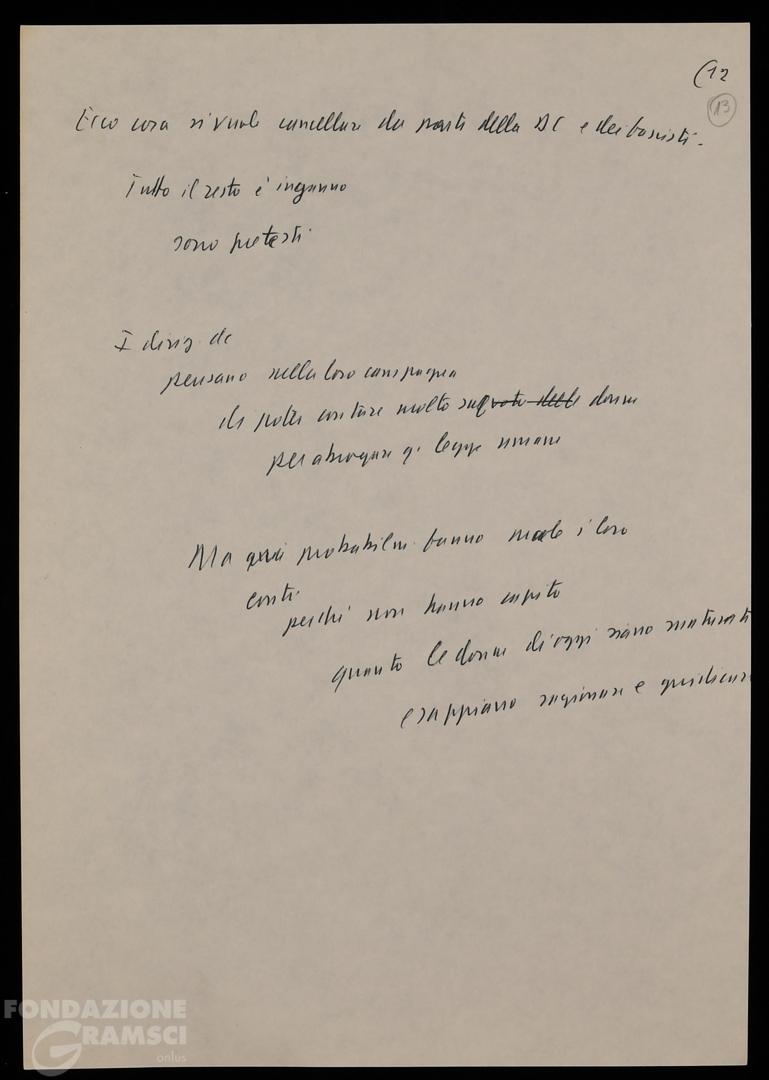 (12
13
Ecco cosa si vuole cancellare da parte della DC e dei fascisti.
Tutto il resto è inganno
sono pretesti
I dirig dc
pensano nella loro campagna
di poter contare molto sul voto delle donne
per abrogare q. legge umana
Ma qui probabilm. fanno male i loro
conti
perché non hanno capito
quanto le donne di oggi siano maturate
e sappiano ragionare e giudicare
FONDAZIONE
GRAMSCI
onlus